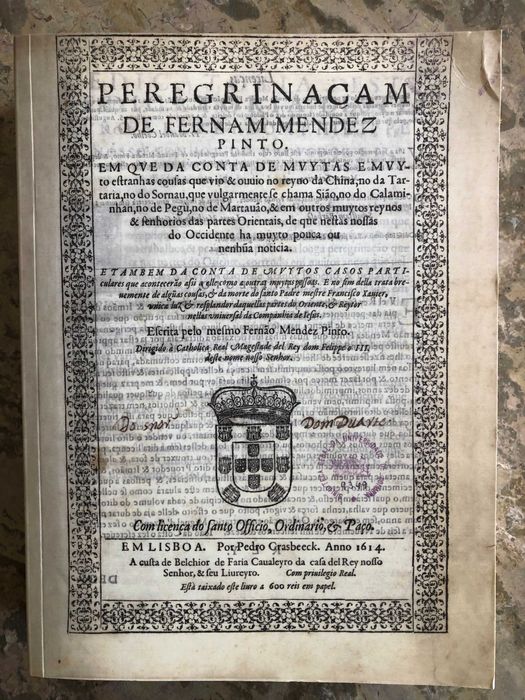 PEREGRINACAM
DE FERNAM MENDEZ
PINTO.
EM QVE DA CONTA DE MVYTAS E MVY-
to estranhas cousas que vio & ouuio no reyno da China, no da Tar-
taria, no do Sornau, que vulgarmente se chama Sião, no do Calami-
nhan, no de Pegù, no de Martauão, & em outros muytos reynos
& senhorios das partes Orientais, de que nestas nossas
do Occidente ha muyto pouca ou
nenhũa noticia.
E TAMBEM DA CONTA DE MVYTOS CASOS PARTI-
culares que acontecerão assi a elle como a outras muytas pessoas. E no fim della trata bre-
uemente de algũas cousas, & da morte do santo Padre mestre Francisco Xauier,
vnica luz & resplandor daquellas partes do Oriente, & Reytor
nellas vniuersal da Companhia de Iesus.
Escrita pelo mesmo Fernão Mendez Pinto.
Dirigido à Catholica Real Magestade del Rey dom Felippe o III.
deste nome nosso Senhor.
Do snõr Dom Duarte
Com licença do santo Officio, Ordinario, & Paço.
EM LISBOA. Por Pedro Crasbeeck. Anno 1614.
A custa de Belchior de Faria Caualeyro da casa del Rey nosso
Senhor, & seu Liureyro. Com priuilegio Real.
Està taixado este liuro a 600 reis em papel.